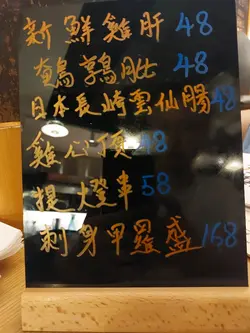 新鮮雞肝 48
鵪鶉肶 48
日本長崎雲仙腸 48
雞心頂 48
提燈串 58
刺身甲羅盛 168